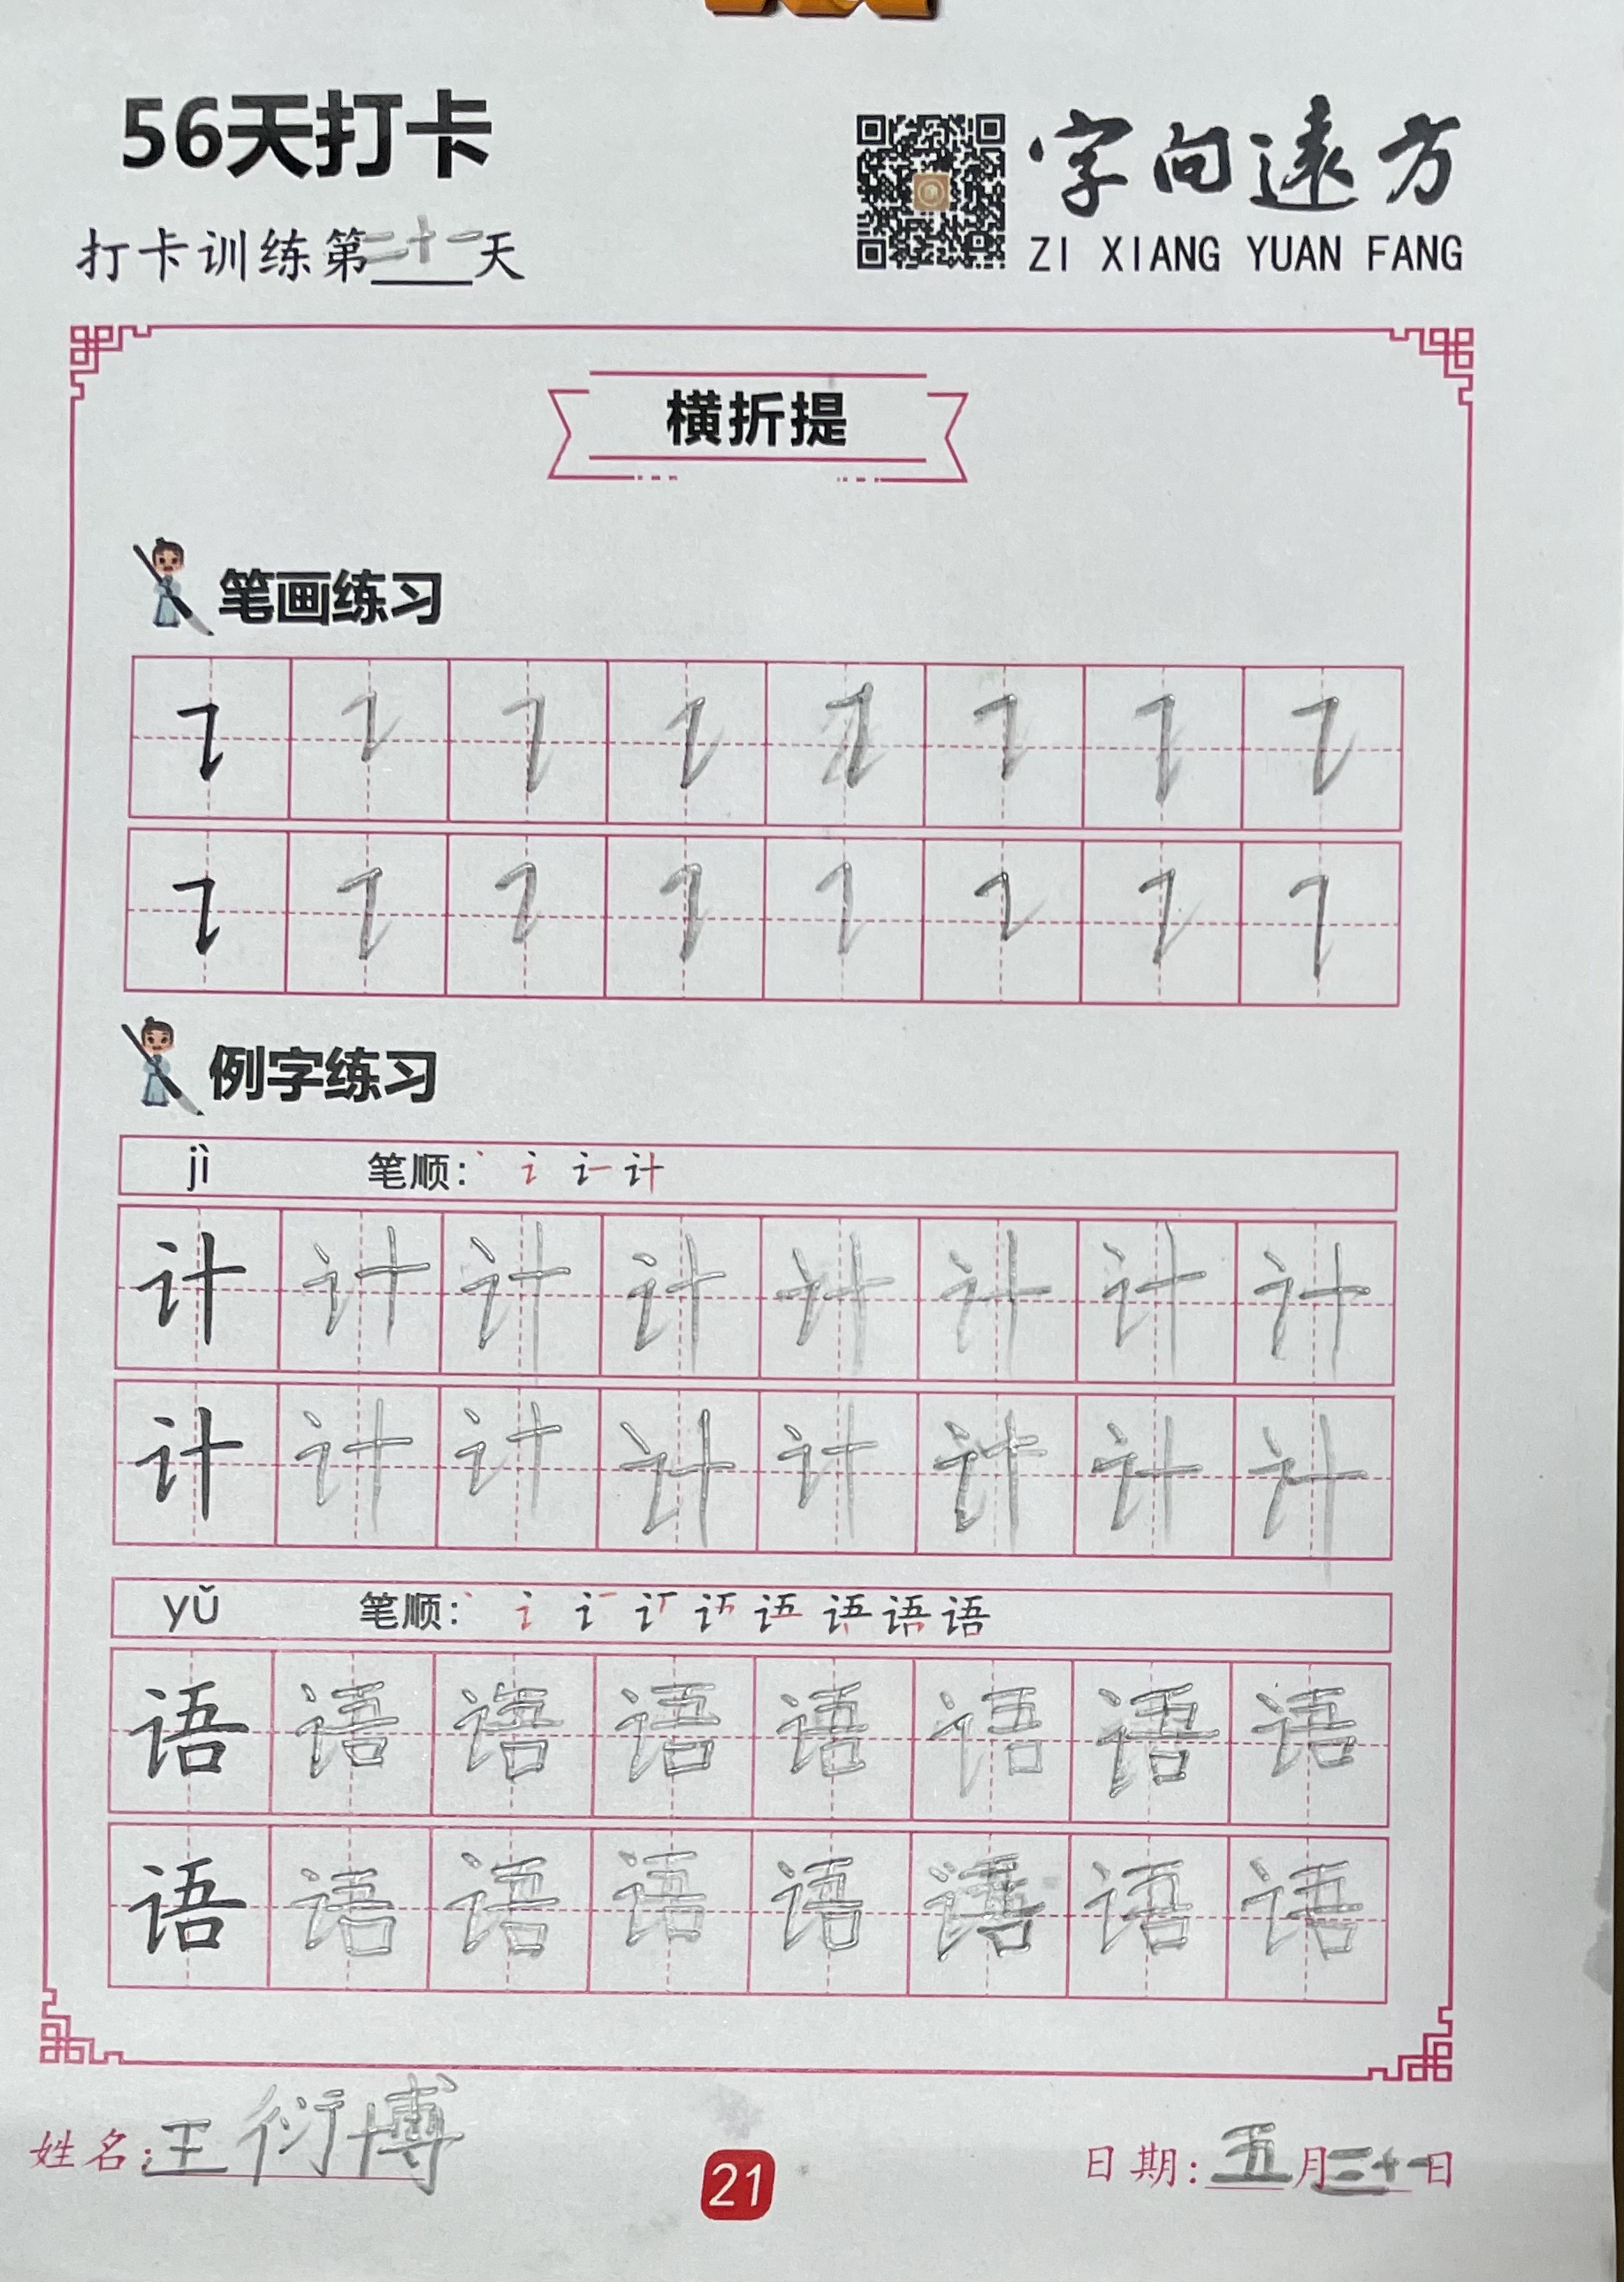 56天打卡
字向遠方
打卡训练第二十一天
ZI XIANG YUAN FANG
横折提
笔画练习
例字练习
jì 笔顺:
计 计 计 计 计 计 计 计
计 计 计 计 计 计 计 计
yǔ 笔顺:
语 语 语 语 语 语 语 语
语 语 语 语 语 语 语 语
姓名:王衍博
21
日期:五月三十一日